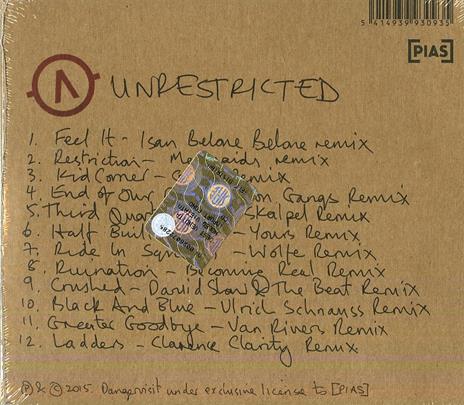 5 414939 930935
[PIAS]
UNRESTRICTED
1. Feel It - Isan Belone Belone remix
2. Restriction - remix
3. Kid Corner - Remix
4. End of Our Gangs Remix
5. Third Skalpel Remix
6. Half Yours Remix
7. Ride In - Wolfe Remix
8. Ruination - Becoming Real Remix
9. Crushed - David Slow & The Beat Remix
10. Black And Blue - Ulrich Schnauss Remix
11. Greater Goodbye - Van Rivers Remix
12. Ladders - Clarence Clarity Remix
Ⓟ & © 2015. Dangervisit under exclusive license to [PIAS]